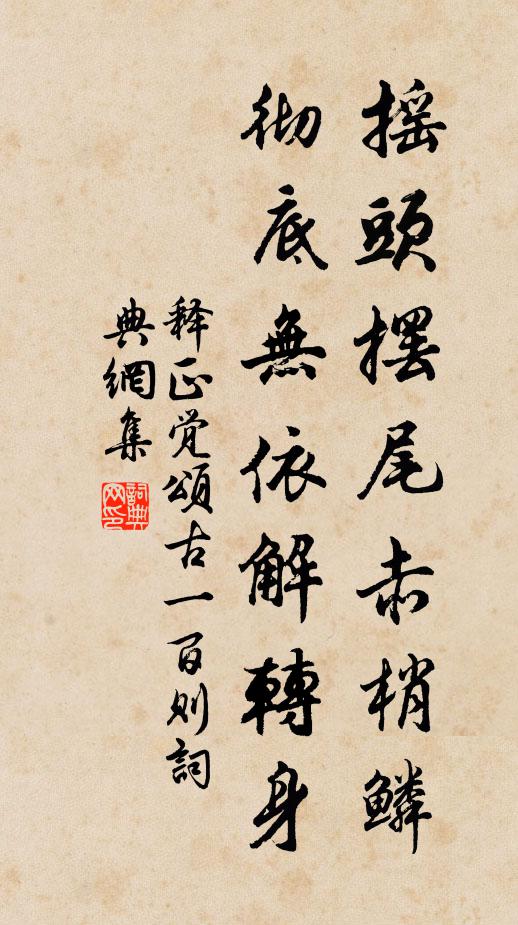 摇頭擺尾赤梢鱗
彻底無依解轉身
释正觉頌古一百则詞
典網集
詞典网印